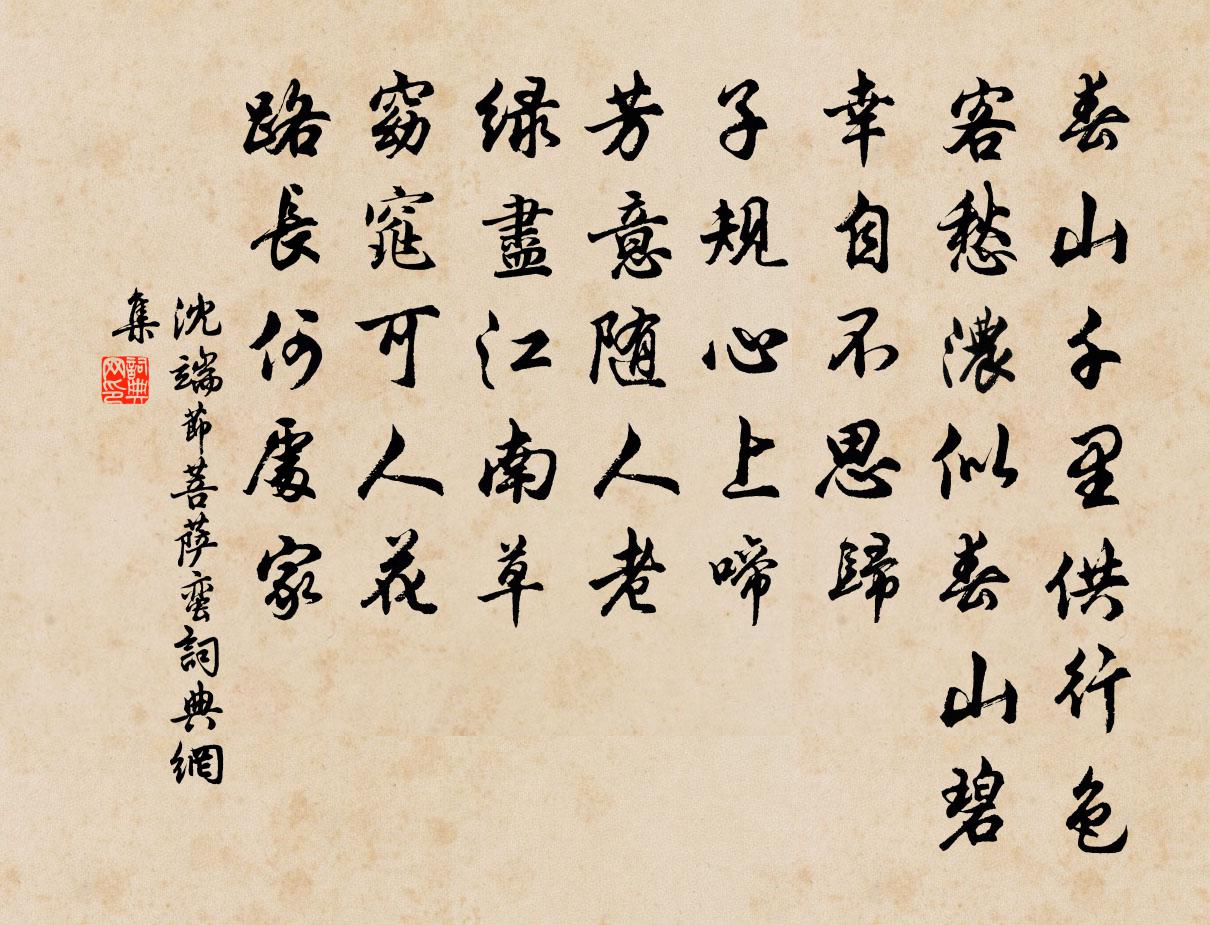 春山千里供行色
客愁濃似春山碧
幸自不思歸
子規心上啼
芳意隨人老
緑盡江南草
窈窕可人花
路長何處家
沈端節菩薩蛮詞典網
集
詞典
网印